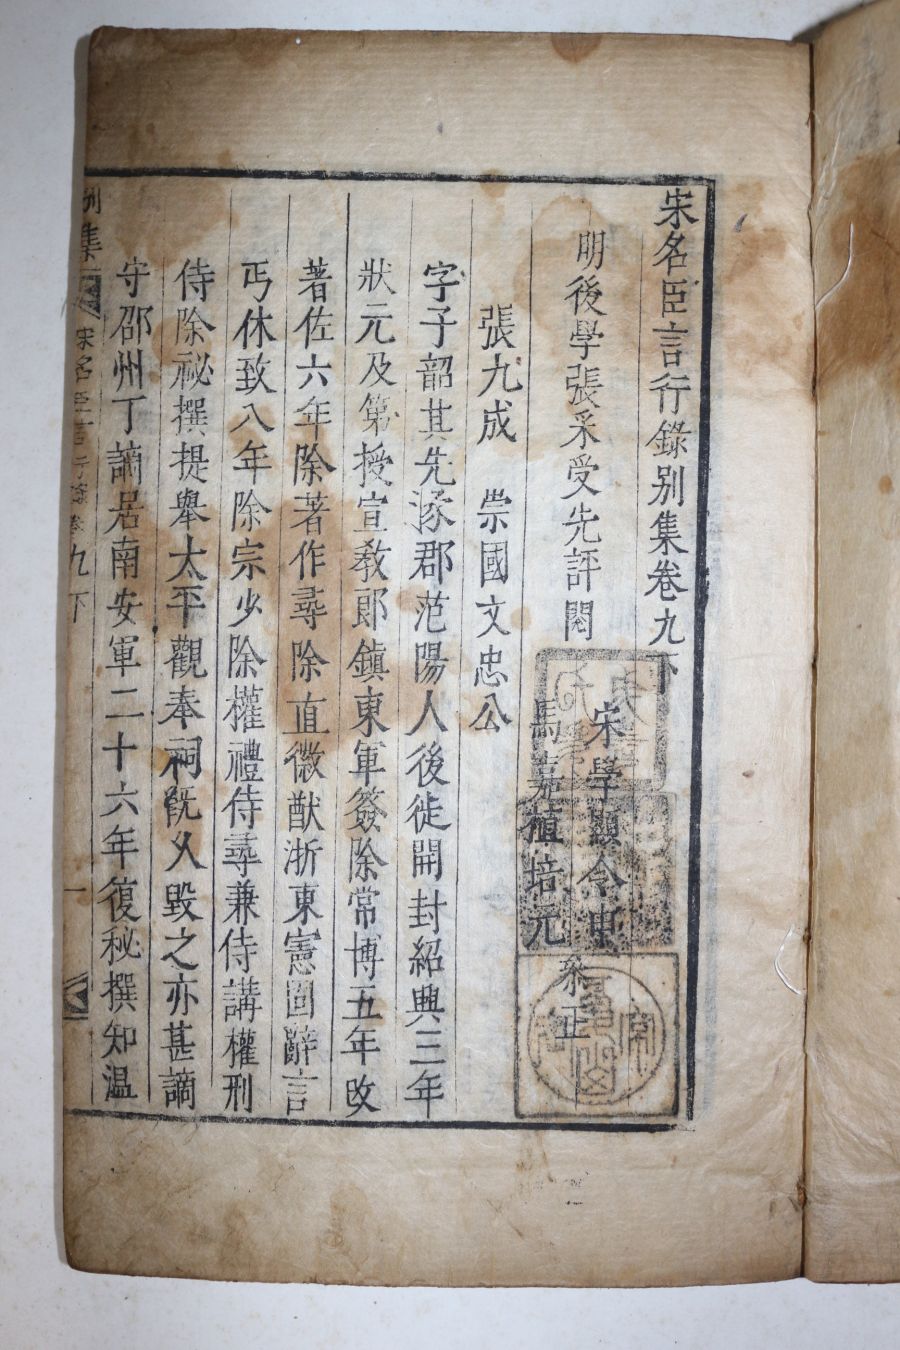 宋名臣言行錄別集卷九下
明後學張采受先評閱
宋學顯令申
馬嘉植培元
叅正
張九成　崇國文忠公
字子韶其先涿郡范陽人後徙開封紹興三年
狀元及第授宣教郎鎮東軍簽除常博五年改
著佐六年除著作尋除直徽猷浙東憲固辭言
丐休致八年除宗少除權禮侍尋兼侍講權刑
侍除祕撰提舉太平觀奉祠旣乂毀之亦甚謫
守邵州丁謫居南安軍二十六年復秘撰知温
別集
宋名臣言行錄卷九下
一